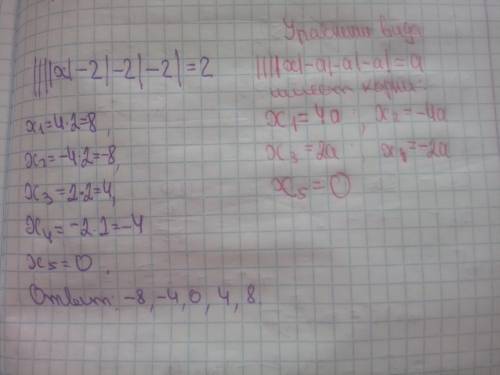 ||||x|-2|-2|-2|=2
x₁=4·2=8,
x₂=-4·2=-8,
x₃=2·2=4,
x₄=-2·2=-4
x₅=0.
Ответ: -8,-4,0,4,8
Уравнения вида
||||x|-a|-a|-a|=a
имеет корни:
x₁=4a; x₂=-4a
x₃=2a; x₄=-2a
x₅=0